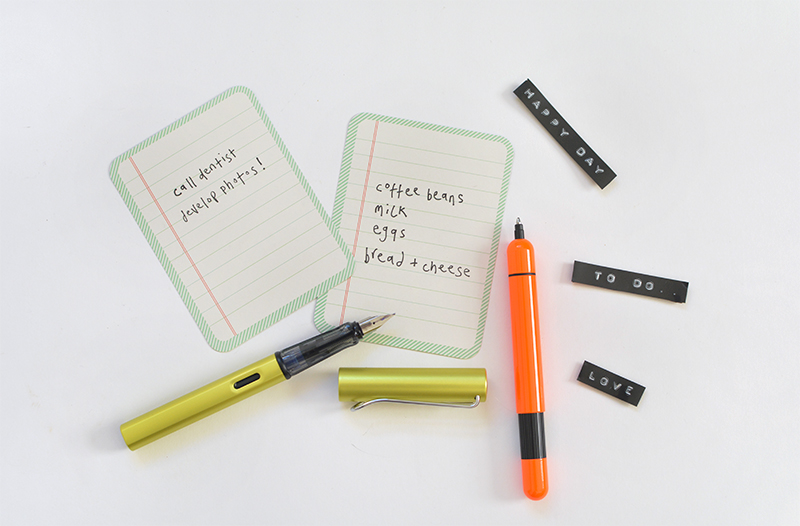 call dentist
develop photos!
coffee beans
milk
eggs
bread + cheese
HAPPY DAY
TO DO..
LOVE